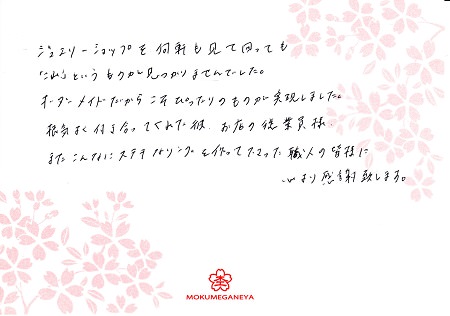 ジュエリーショップを何軒も見て回っても
「これ」というものが見つかりませんでした。
オーダーメイドだからこそぴったりのものが実現しました。
根気よく付き合ってくれた彼、お店の従業員様、
またこんなにステキなリングを作って下さった職人の皆様に
心より感謝致します。
MOKUMEGANEYA